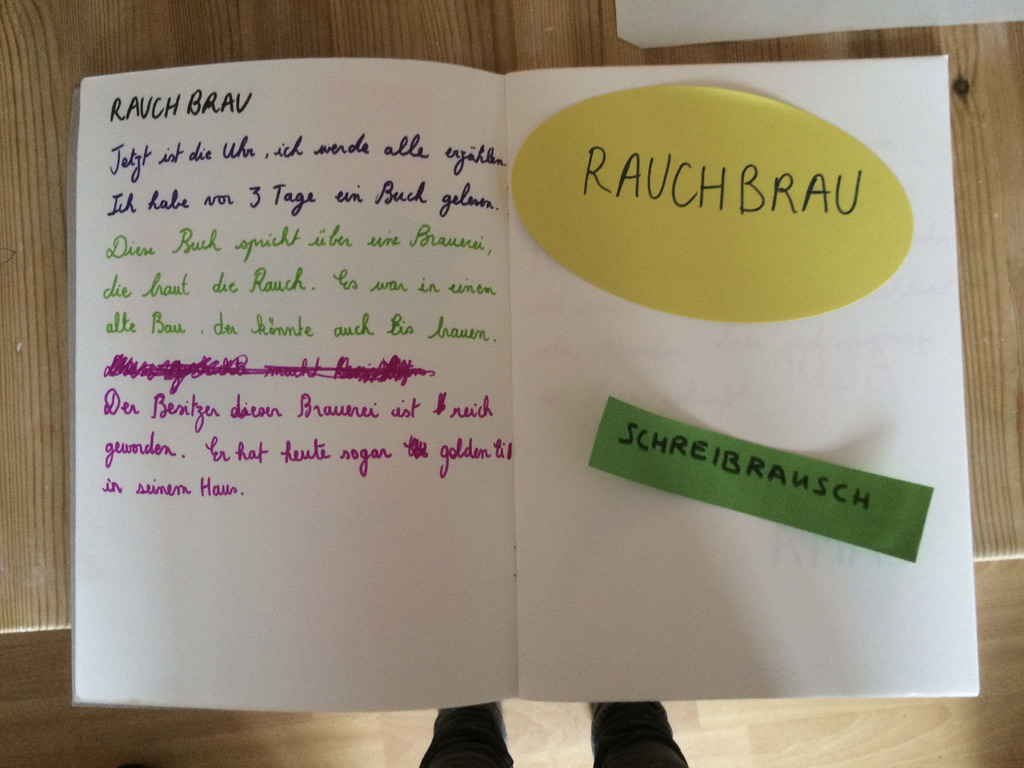 RAUCHBRAU
Jetzt ist die Uhr, ich werde alle erzählen
Ich habe vor 3 Tage ein Buch gelesen.
Diese Buch spricht über eine Brauerei,
die braut die Rauch. Es war in einem
alte Bau, der könnte auch Eis brauen.
macht
Der Besitzer dieser Brauerei ist reich
geworden. Er hat heute sogar golden
in seinem Haus.
RAUCHBRAU
SCHREIBRAUSCH